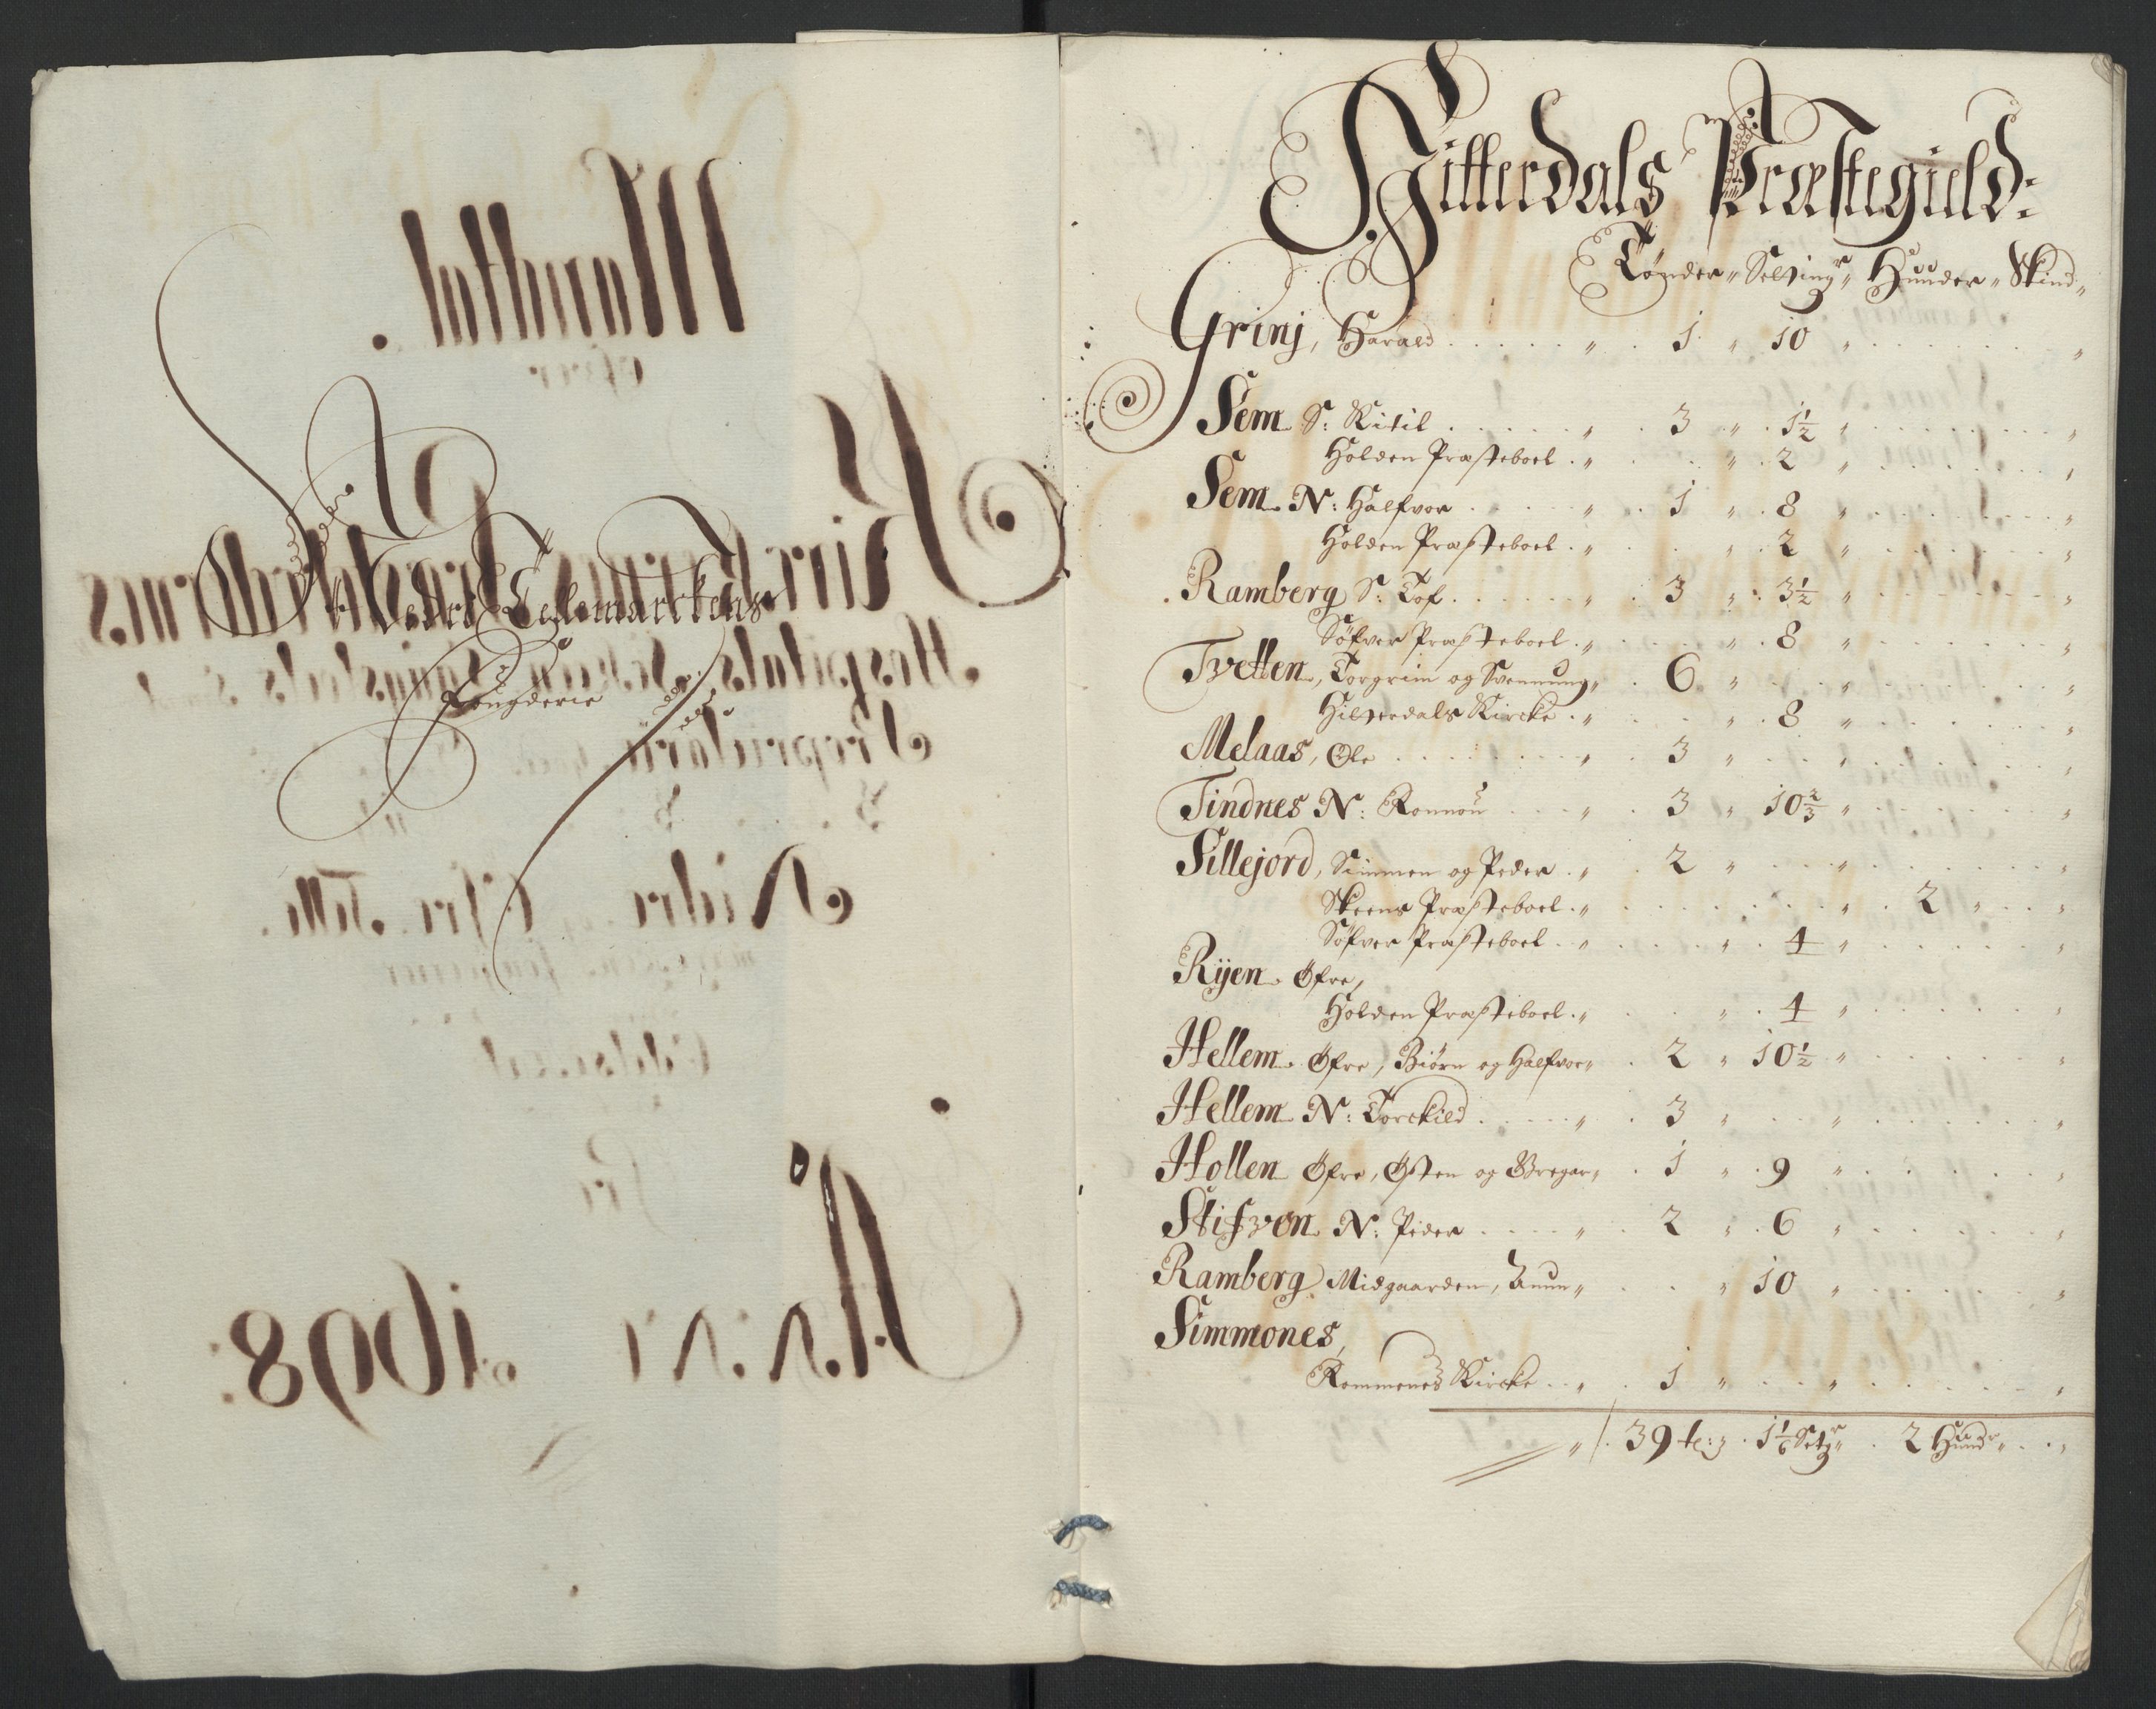 Nedre Tellemarckens
Fougderie
Hitterdals Præstegield:
Tønder " Setting.r " Huuder " Skind "
Grinj, Harald . . . . . " . 1 " 10 " . . . . . "
Sem S: Kitil . . . . . " . 3 " . 1½ " . . . . . "
Holden Præsteboel . " . . . " . 2 " . . . . . "
Sem N: Halfvor . . . . " . 1 " . 8 " . . . . . "
Holden Præsteboel . " . . . " . 2 " . . . . . "
Ramberg S: Tof . . . . . " . 3 " . 3½ " . . . . . "
Søfver Præsteboel . " . . . " . 8 " . . . . . "
Tvetten, Torgrim og Svennung " . 6 " . . . " . . . . . "
Hitterdals Kircke . " . . . " . 8 " . . . . . "
Melaas, Ole . . . . . . " . 3 " . . . " . . . . . "
Tindnes N: Ronnou . . . " . 3 " 10⅔ " . . . . . "
Sillejord, Simmen og Peder . " . 2 " . . . " . . . . . "
Skeens Præsteboel . " . . . . . . . " . 2 " . . "
Søfver Præsteboel . . " . . . " . 4 " . . . . . "
Rijen Øfre,
Holden Præsteboel . " . . . " . 4 " . . . . . "
Hellem Øfre, Biørn og Halfvor " . 2 " 10½ " . . . . . "
Hellem N: Torckild . . . . " . 3 " . . . " . . . . . "
Hollen Øfre, Østen og Gregar " . 1 " . 9 " . . . . . "
Stifven N: Peder . . . . " . 2 " . 6 " . . . . . "
Ramberg Midgaarden, Anun " . . . " 10 " . . . . . "
Simmones,
Rommenes Kircke . . " . 1 " . . . " . . . . . "
" . 39 t: " . 1⅙ Setg.r " . 2 Huud.r " . . "